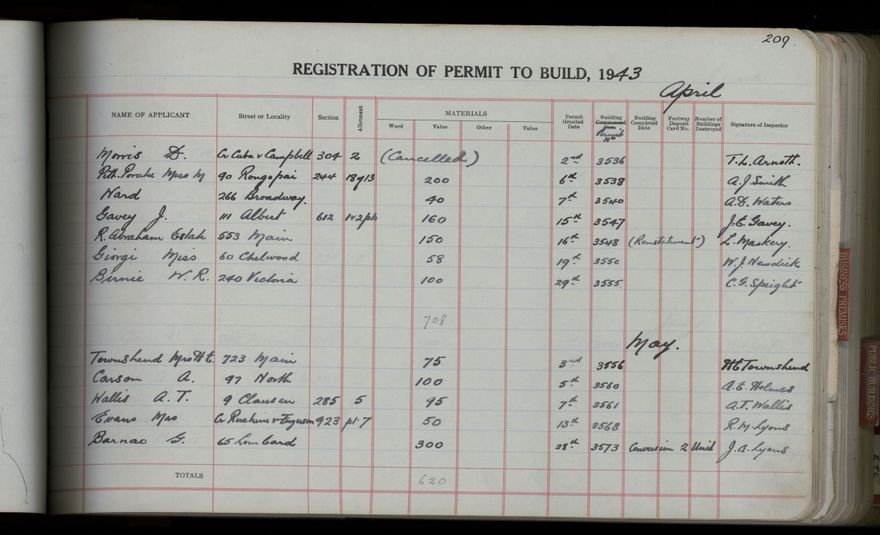 209.
REGISTRATION OF PERMIT TO BUILD, 1943
April
NAME OF APPLICANT Street or Locality Section Allotment MATERIALS Wood Value Other Value Permit Granted Date Building Commenced Date Permit No Building Completed Date Footway Deposit Card No. Number of Buildings Destroyed Signature of Inspector
Morris D. Cr Cuba & Campbell 304 2 (Cancelled) 2nd 3536 T. L. Arnott.
Miss M 90 Rongopai 244 18 9 13 200 6th 3538 A. J. Smith
Ward 266 Broadway 40 7th 3540 A. D. Waters
Gavey J. 111 Albert 612 1 & 2 pt 160 15th 3547 J. E. Gavey.
R. Abraham Estate 553 Main 150 16th 3548 (Reinstatement) L. Maskery.
Giorgi Miss 60 Chelwood 58 19th 3550 W. J. Newdick
Birnie W. R. 240 Victoria 100 29th 3555 C. G. Speight
708
May.
Townshend Mrs H E 723 Main 75 3rd 3556 H E Townshend
Carson A. 97 North 100 5th 3560 A. E. Holmes
Wallis A. T. 9 Clausen 285 5 95 7th 3561 A. T. Wallis
Evans Mrs Cr Ruahine & Ferguson 923 pt 7 50 13th 3568 R. M. Lyons
Barnao G. 65 Lombard 300 28th 3573 Conversion 2 Units J. A. Lyons
TOTALS 620
BUSINESS PREMISES
PUBLIC BUILDINGS